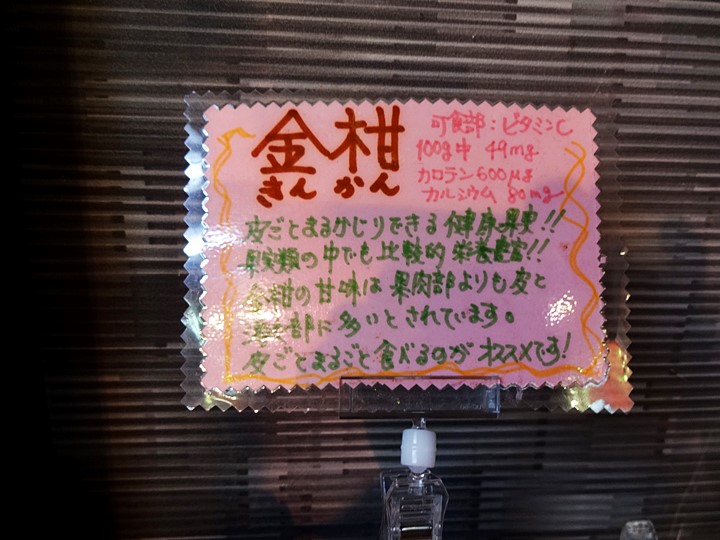 金柑
きんかん
可食部：ビタミンC
100g中 49mg
カロラン600μg
カルシウム 80mg
皮ごとまるかじりできる健康果実!!
果実類の中でも比較的 栄養豊富!!
金柑の甘味は果肉部よりも皮と
部に多いとされています。
皮ごとまるごと食べるのがオススメです!